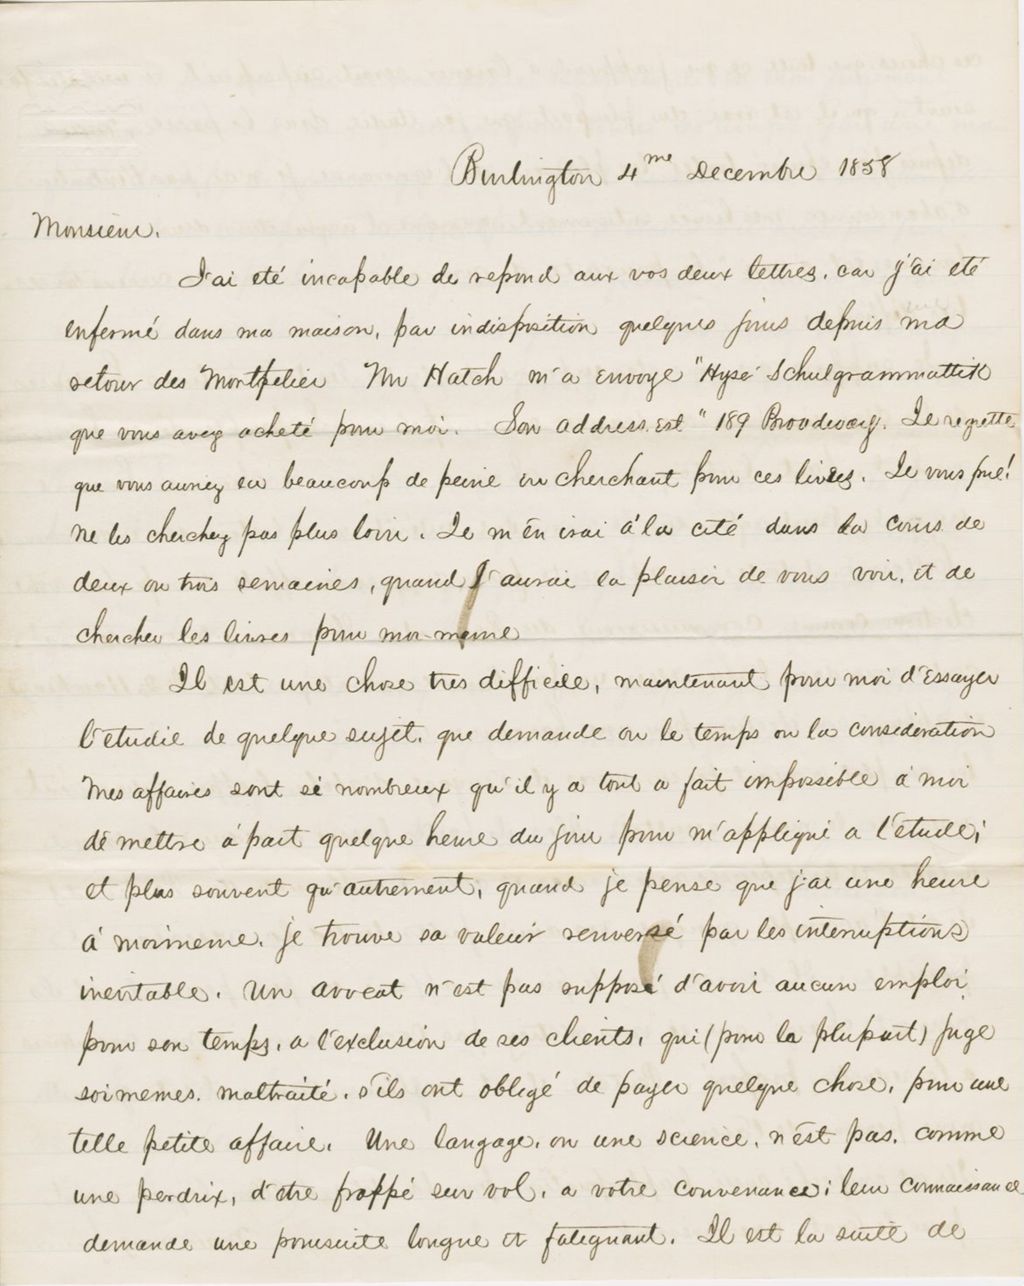 Burlington 4me Decembre 1858
Monsieur.
J'ai eté incapable de repond aux vos deux lettres, car j'ai eté
enfermé dans ma maison, par indisposition quelques jours depuis ma
retour des Montpelier Mr Hatch m'a envoye "Hyse' Schulgrammattik
que vous avez acheté pour moi. Son address est "189 Broadway. Je regrette
que vous auriez eu beaucoup de peine en cherchant pour ces livres. Je vous prie!
ne les cherchez pas plus loin. Je m'en irai á la cité dans la cours de
deux ou trois semaines, quand J'aurai la plaisir de vous voir, et de
chercher les livres pour moi-meme
Il est une chose tres difficile, maintenant pour moi d'essayer
l'etudie de quelque sujet, que demande ou le temps ou la consideration
Mes affaires sont si nombreux qu'il y a tout a fait impossible á moi
de mettre á part quelque heure du jour pour m'appliqué a l'etude;
et plus souvent qu'autrement, quand je pense que j'ai une heure
á moimeme, je trouve sa valeur renversé par les interruptions
inevitable. Un avocat n'est pas supposé d'avoir aucun emploi
pour son temps, a l'exclusion de ses clients, qui (pour la plupart) juge
soimemes maltraité, s'ils ont obligé de payer quelque chose, pour une
telle petite affaire. Une langage, ou une science, n'est pas, comme
une perdrix, d'etre frappé sur vol, a votre convenance; leur connaissance
demande une poursuite longue et fatignant. Il est la suite de